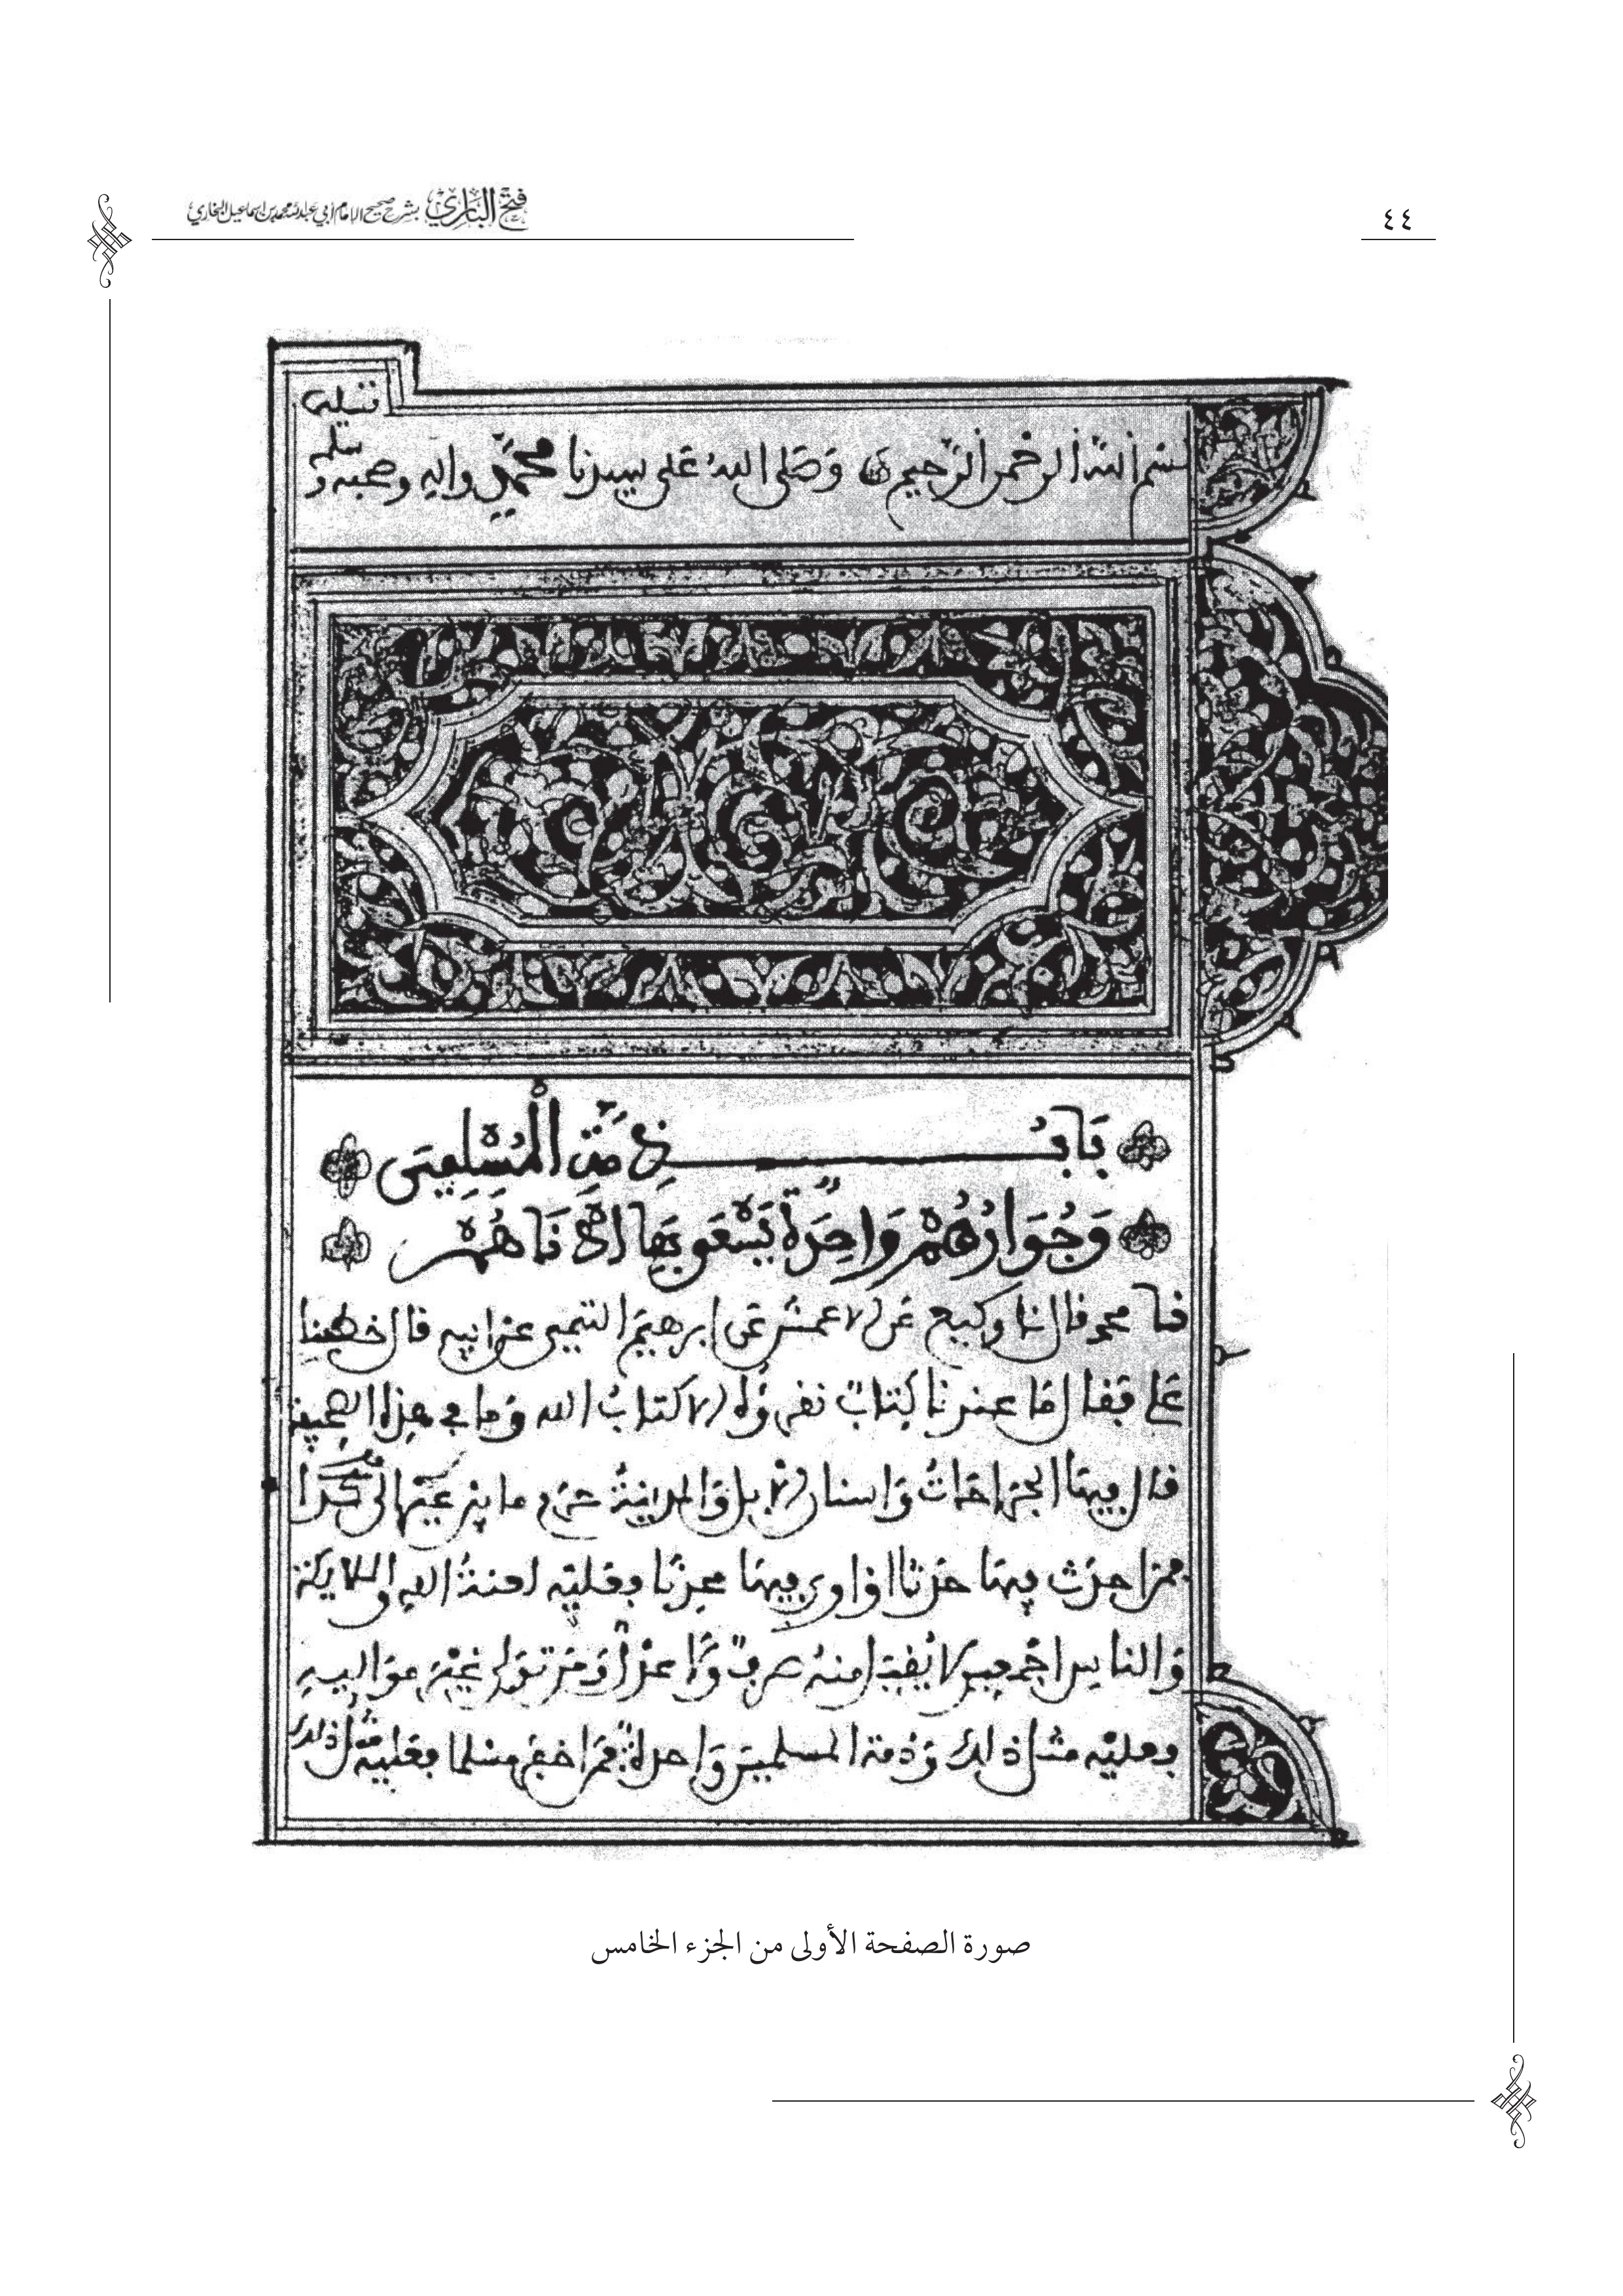 فتح الباري بشرح صحيح الإمام أبي عبد الله محمد بن إسماعيل البخاري
٤٤
بسم الله الرحمن الرحيم وصلى الله على سيدنا محمد واله وصحبه وسلم تسليما
باب ذمة المسلمين
وجوارهم واحدة يسعى بها ادناهم
محمد قال نا وكيع عن الاعمش عن ابرهيم التيمي عن ابيه قال خطبنا
علي فقال ما عندنا كتاب نقرؤه الا كتاب الله وما في هذه الصحيفة
قال فيها الجراحات واسنان الابل والمدينة حرم ما بين عير الى كذا
فمن احدث فيها حدثا او اوى فيها محدثا فعليه لعنة الله والملايكة
والناس اجمعين لا يقبل منه صرف ولا عدل ومن تولى غير مواليه
فعليه مثل ذلك وذمة المسلمين واحدة فمن اخفر مسلما فعليه مثل ذلك
صورة الصفحة الأولى من الجزء الخامس